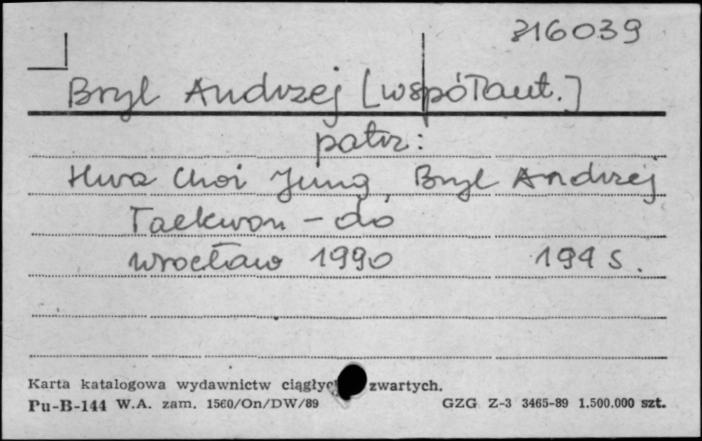 316039
Bryl Andrzej [współaut.]
patrz:
Hwa Choi Jung, Bryl Andrzej
Taekwon-do
Wrocław 1990 194 s.
Karta katalogowa wydawnictw ciągłyc zwartych.
Pu-B-144 W.A. zam. 1560/On/DW/89 GZG Z-3 3465-89 1.500.000 szt.